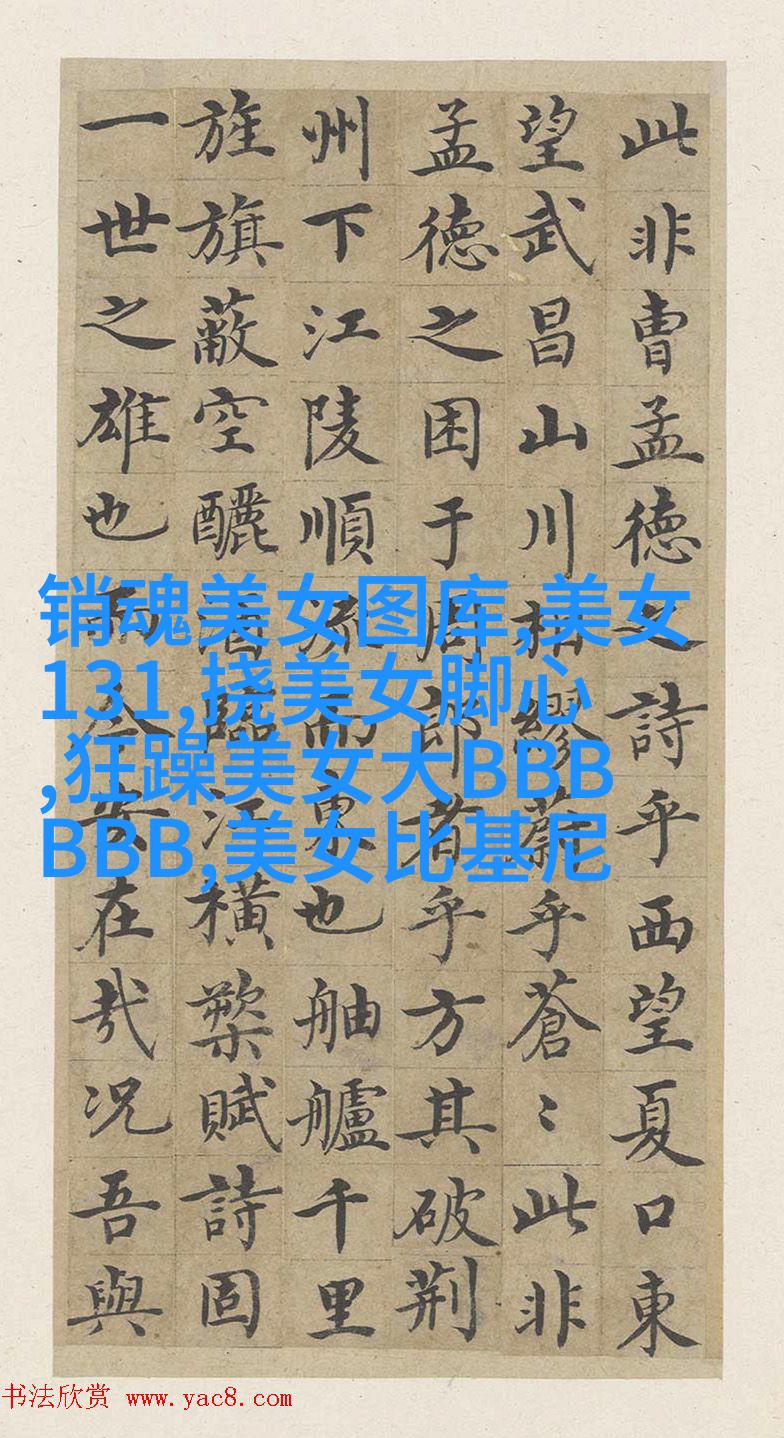 此非曹孟德之詩乎西望夏口東
望武昌山川相繆蔚乎蒼〻此非
孟德之困于周郎者乎方其破荆
州下江陵順流而東也舳艫千里
旌旗蔽空釃酒臨江橫槊賦詩固
一世之雄也而今安在哉况吾與
销魂美女图库,美女
131,挠美女脚心
,狂躁美女大BBB
BBB,美女比基尼
书法欣赏 www.yac8.com